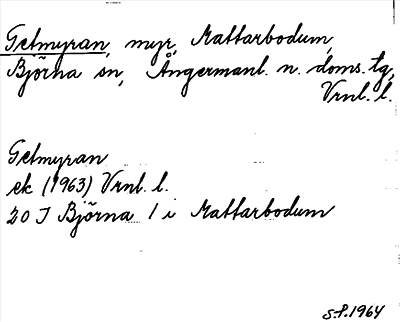 Getmyran, myr, Mattarbodum,
Björna sn, Ångermanl. n. doms. tg,
Vrnl. l.
Getmyran
ek (1963) Vrnl. l.
20 J Björna 1 i Mattarbodum
S.P. 1964